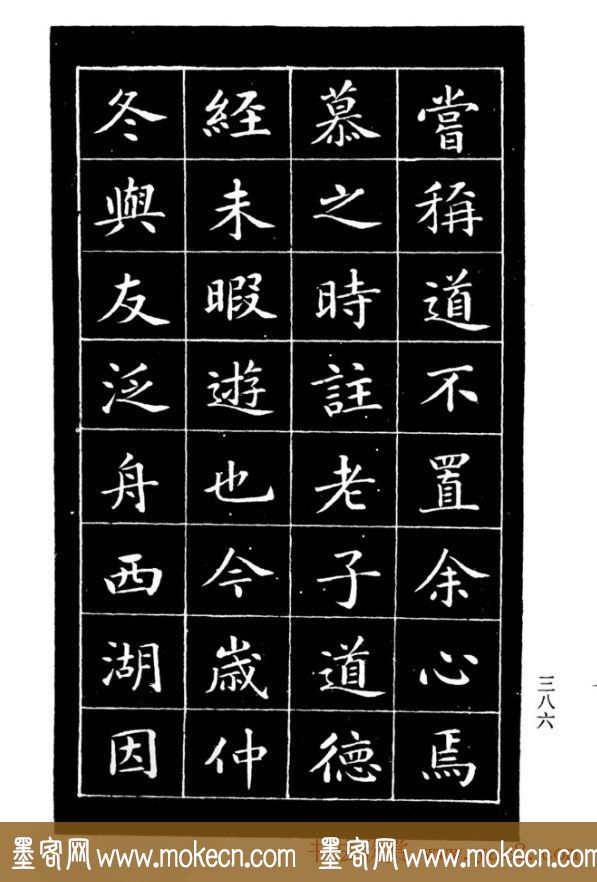 嘗稱道不置余心焉
慕之時註老子道德
經未暇遊也今歲仲
冬與友泛舟西湖因
三八六
墨客网 www.mokecn.com 墨客网 www.mokecn.com